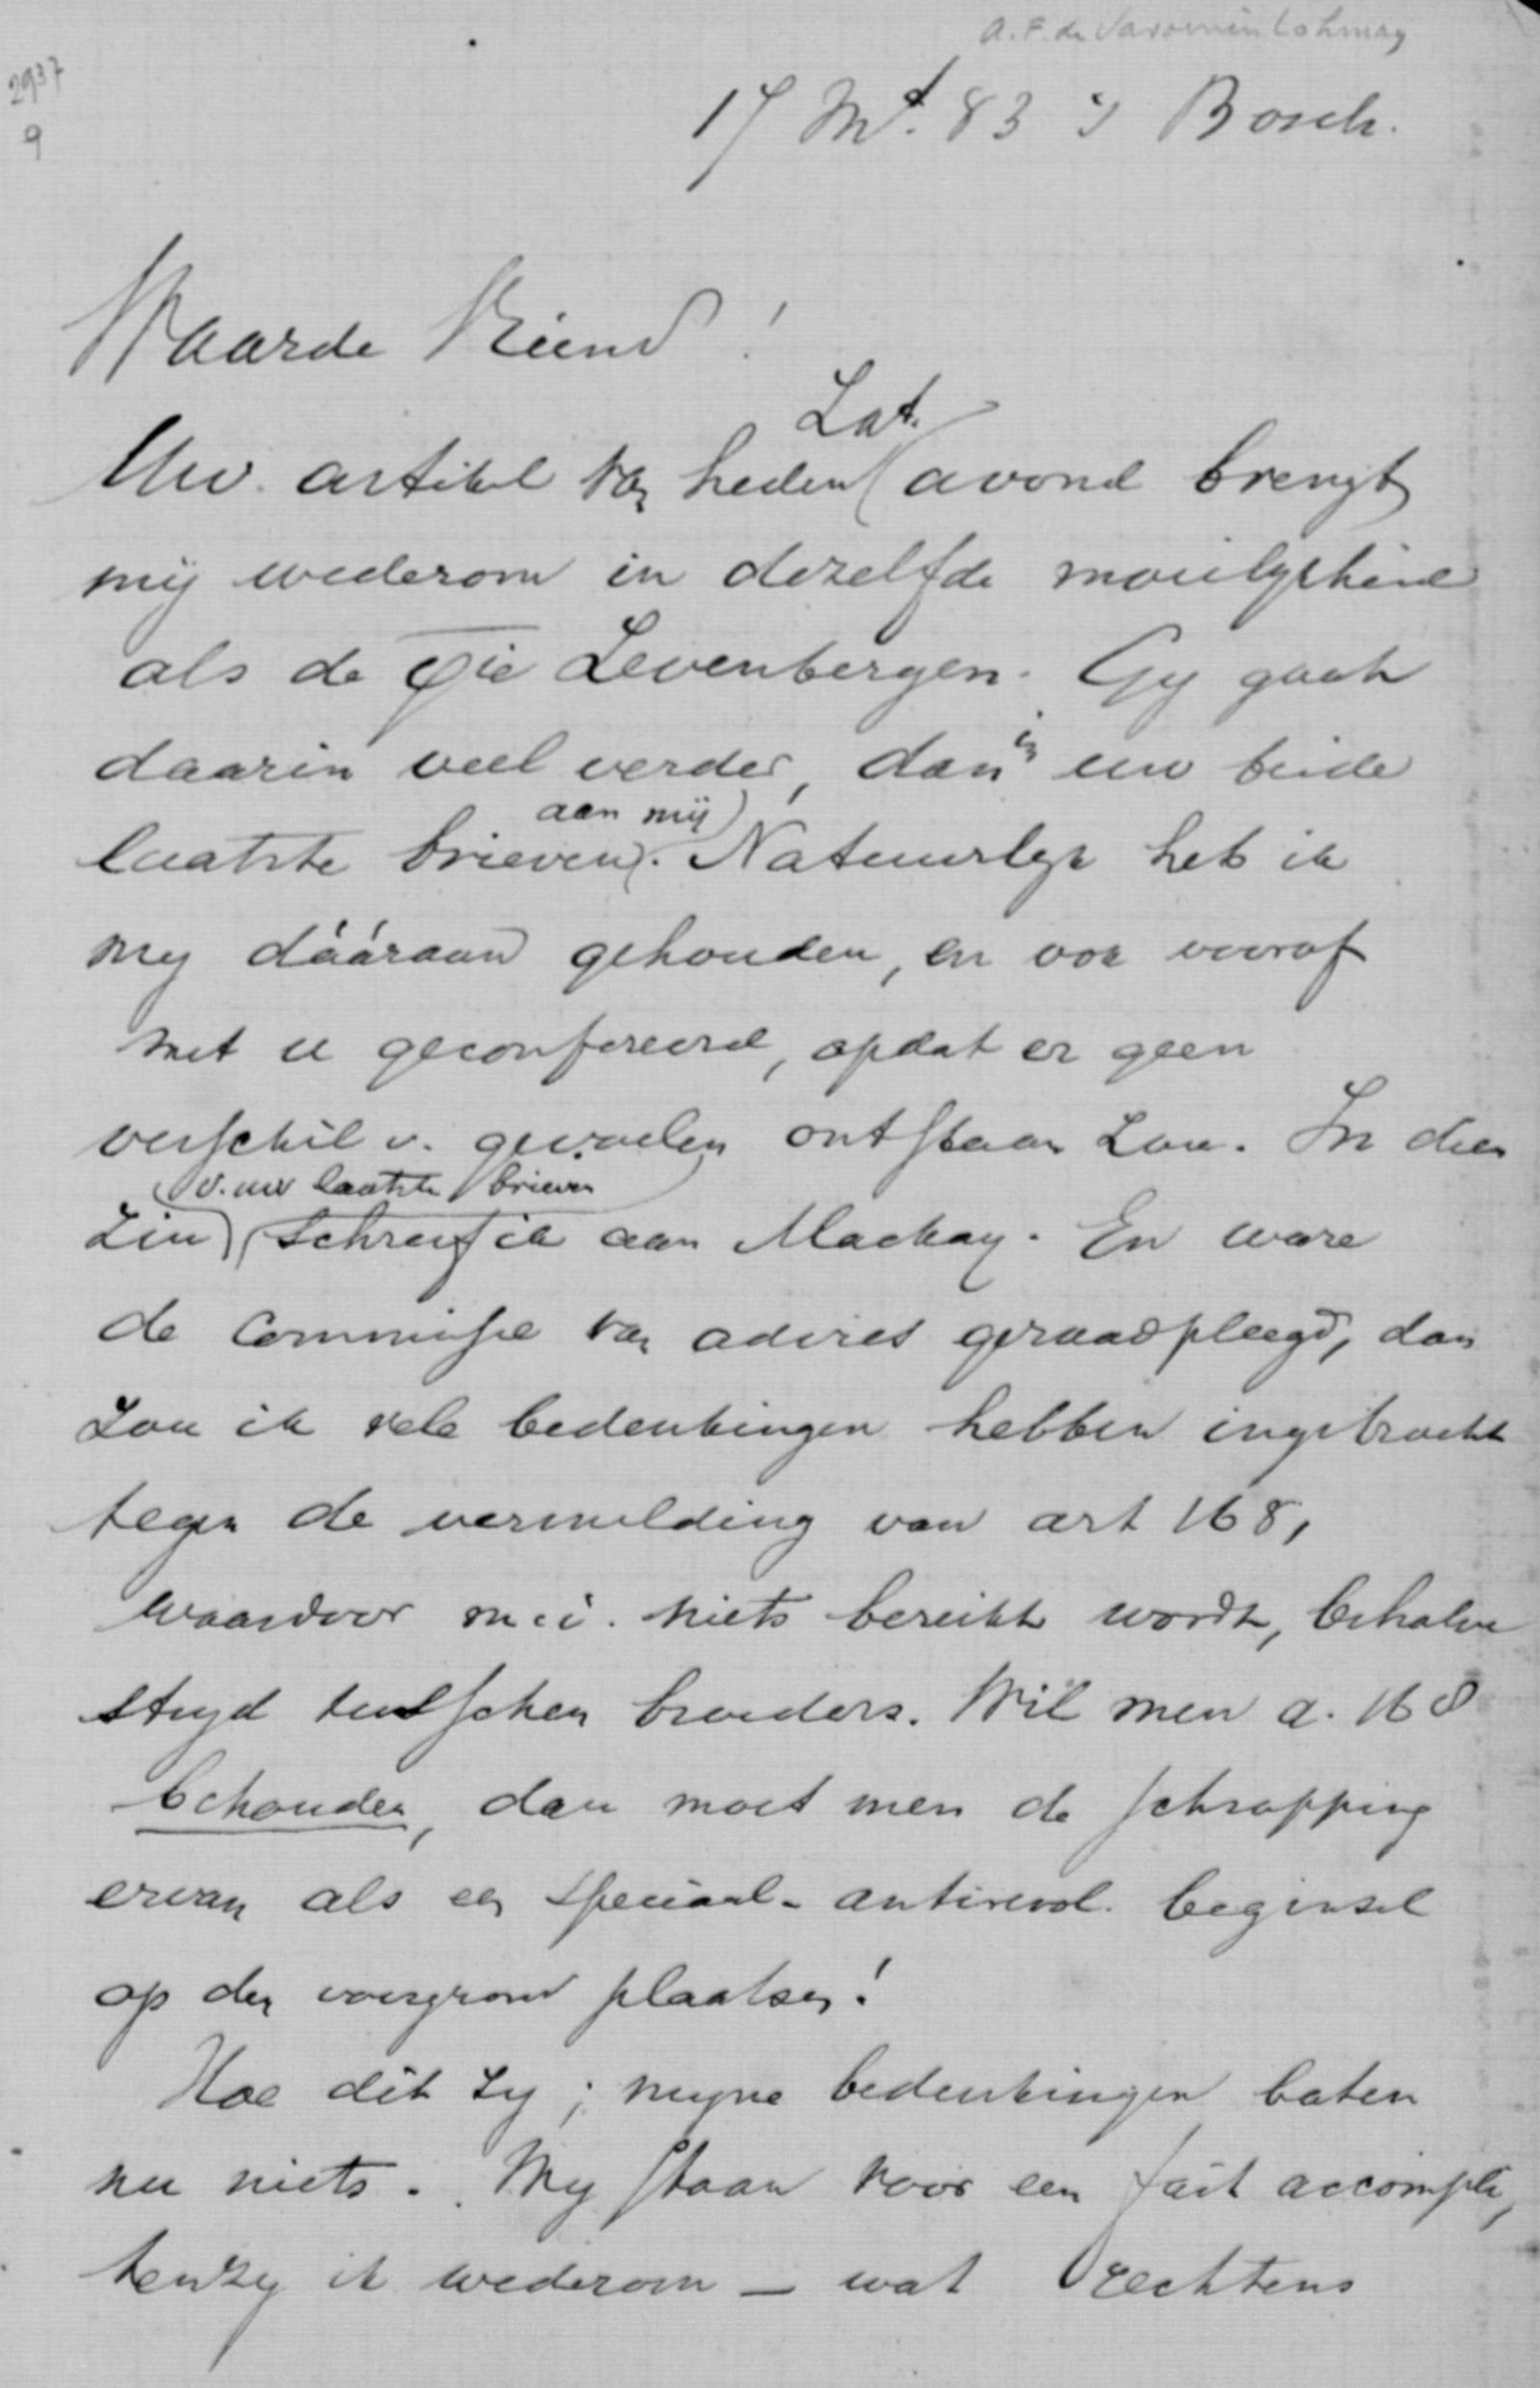 A.F. de Savornin Lohman
2937
9
17 Mt. 83 's Bosch.
Waarde Vriend!
Zat.
Uw artikel van heden avond brengt
mij wederom in dezelfde moeilykheid
als de qie Levenbergen. Gy gaat
daarin veel verder, dan in uw beide
aan mij
laatste brieven. Natuurlyk heb ik
my dááraan gehouden, en ook vooraf
met u geconfereerd, opdat er geen
verschil v. gevoelen ontstaan zou. In dien
v. uw laatste brieven
zin schreef ik aan Mackay. En ware
de Commissie van advies geraadpleegd, dan
zou ik vele bedenkingen hebben ingebracht
tegen de vermelding van art 168,
waardoor m.i. niets bereikt wordt, behalve
stryd tusschen broeders. Wil men a. 168
behouden, dan moet men de schrapping
ervan als een speciaal-antirevol. beginsel
op den voorgrond plaatsen!
Hoe dit zy; myne bedenkingen baten
nu niets. Wy staan voor een fait accompli,
tenzy ik wederom — wat rechtens